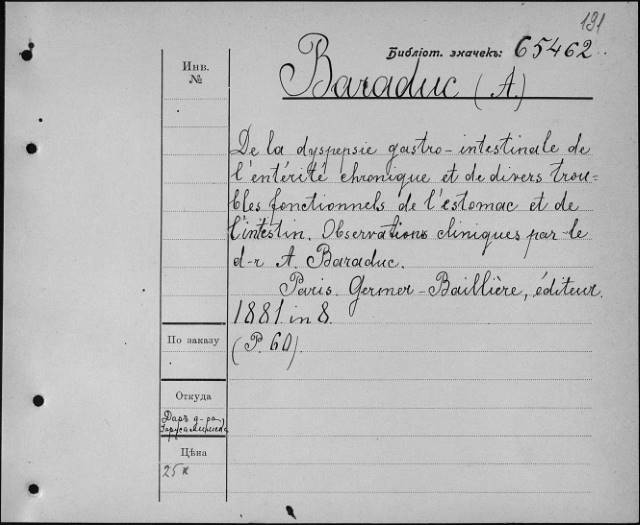 191
Библіот. значекъ: 65462.
Инв.
№
Baraduc (A.)
De la dyspepsie gastro-intestinale de
l'entérité chronique et de divers trou-
bles fonctionnels de l'estomac et de
l'intestin. Observations cliniques par le
d-r A. Baraduc.
Paris. Germer-Baillière, éditeur.
1881. in 8.
(P. 60).
По заказу
Откуда
Даръ д-ра
Цѣна
25 к